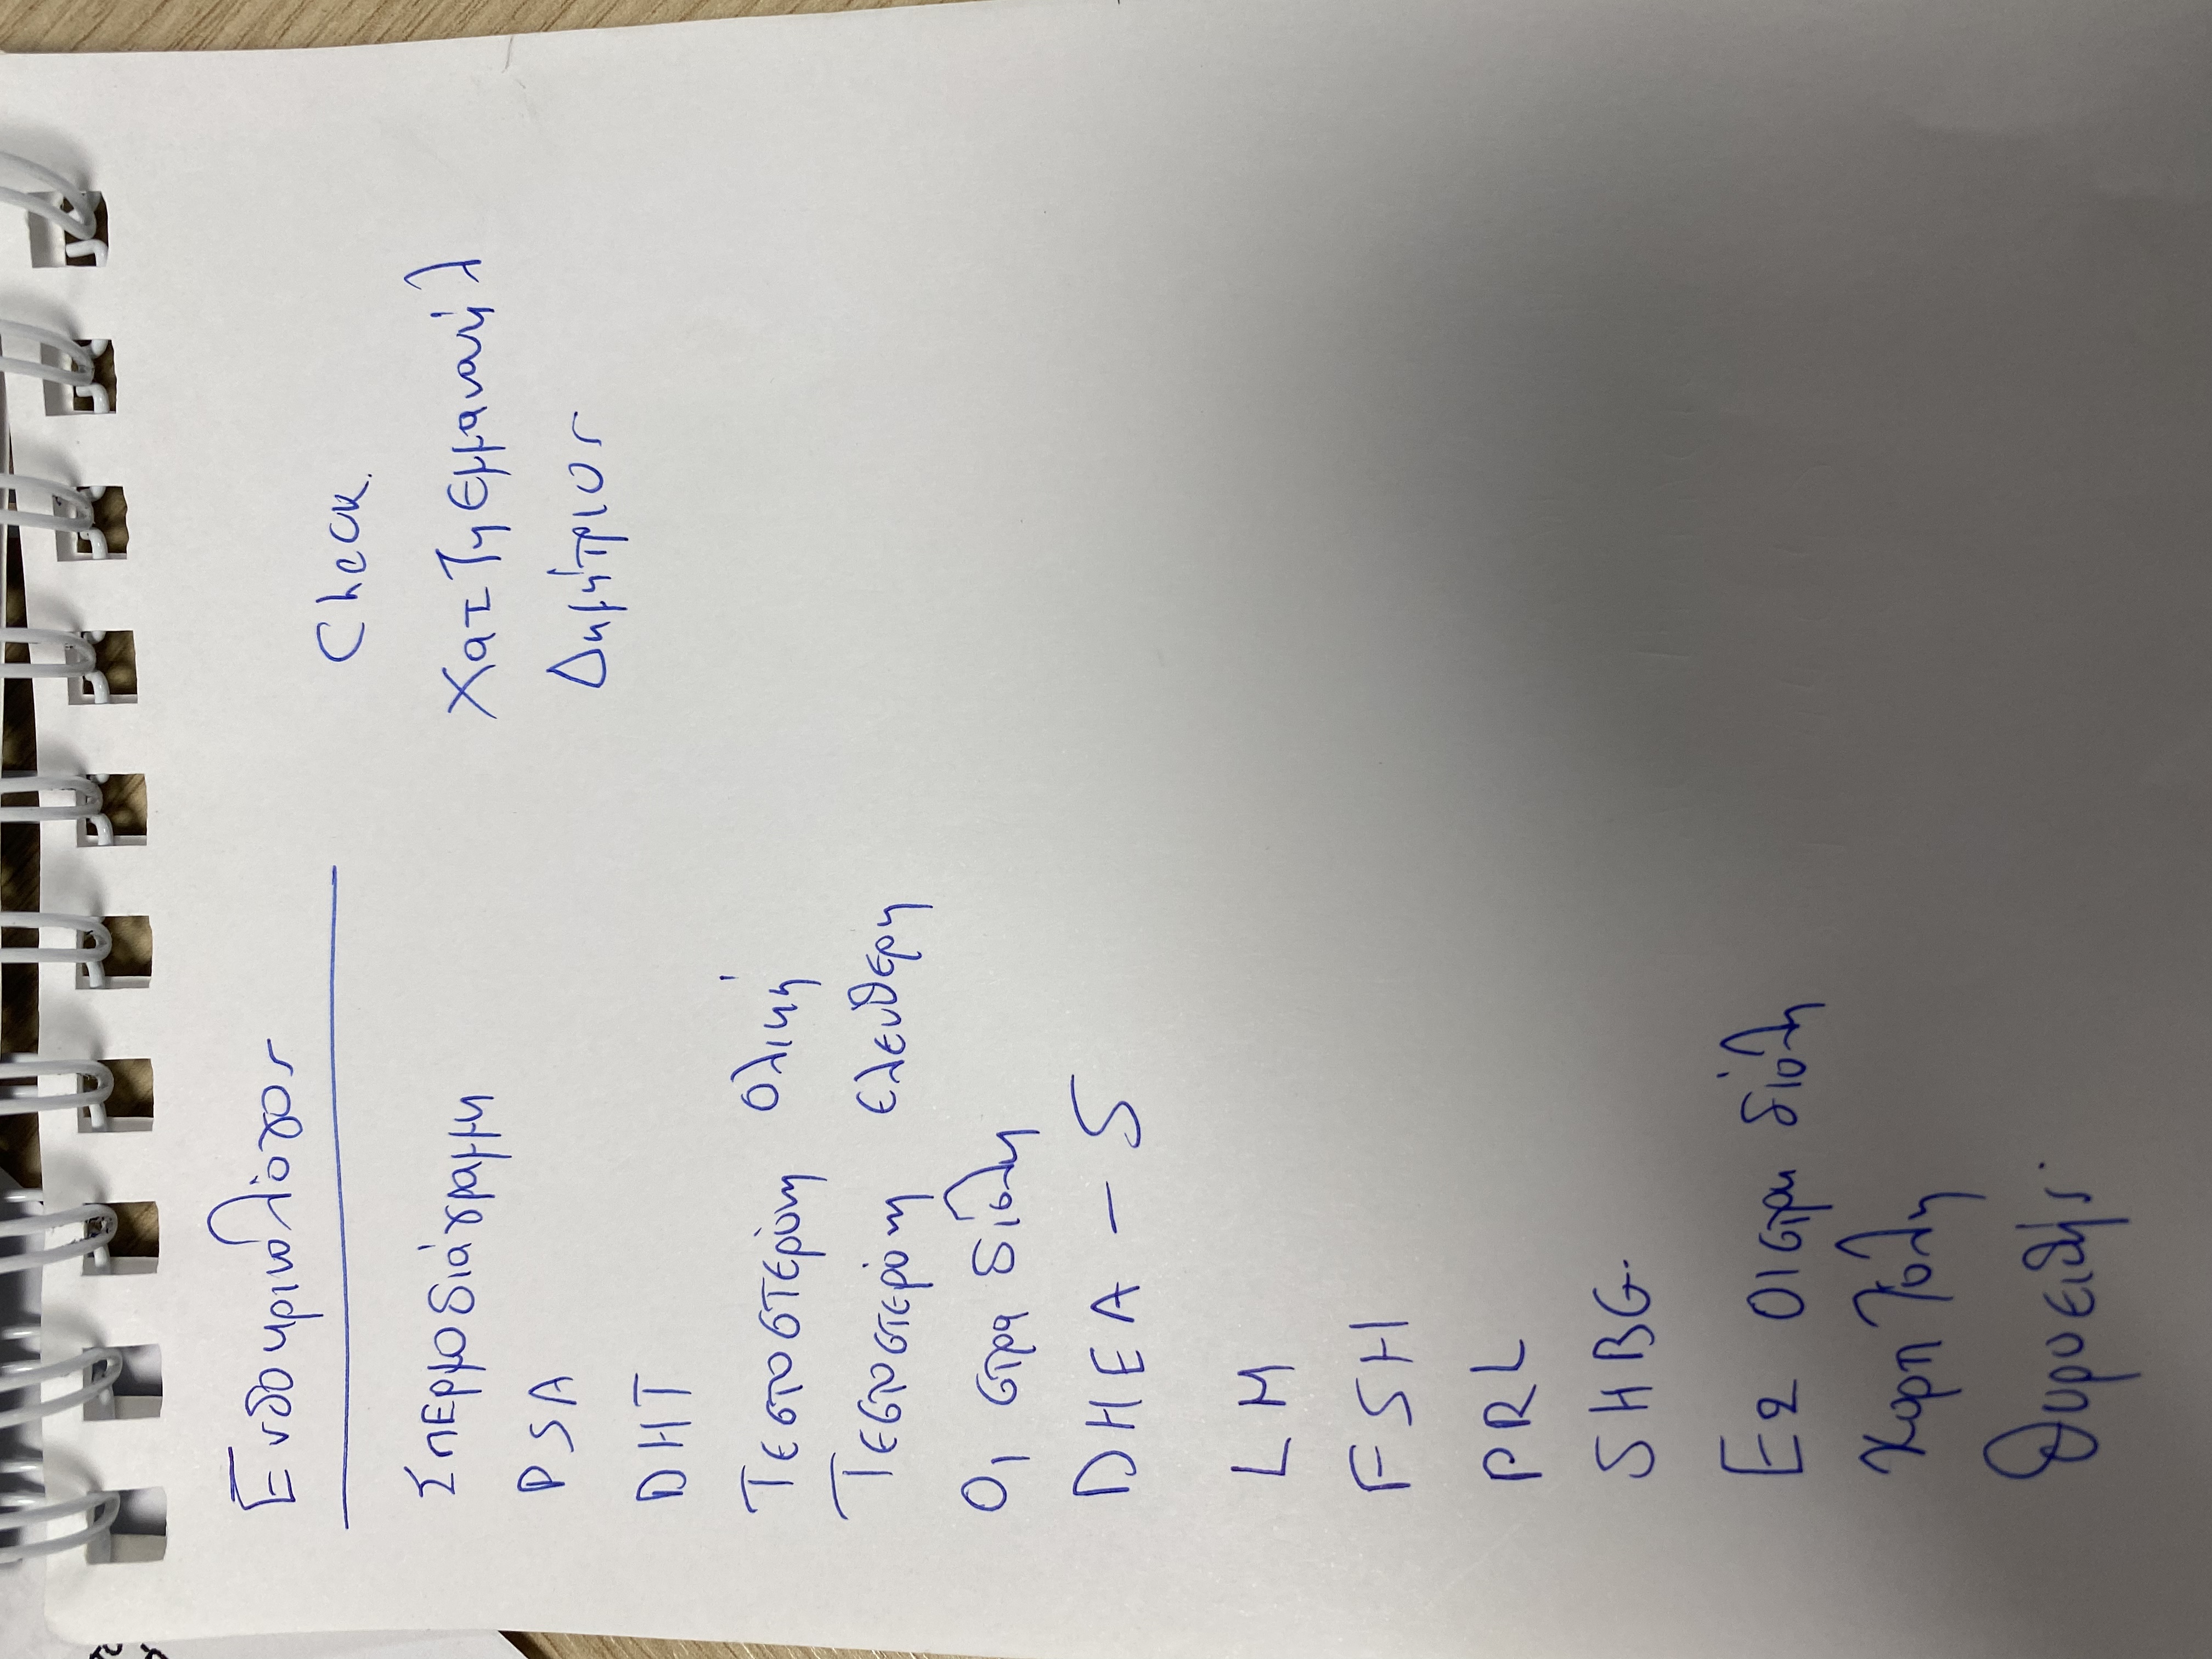 Ενδοκρινολόγος
Check
Χατζηεμμανουήλ
Δημήτριος
Σπερμοδιάγραμμα
PSA
DHT
Τεστοστερόνη ολική
Τεστοστερόνη ελευθερη
Οιστραδιόλη
DHEA-S
LH
FSH
PRL
SHBG.
E2 Οιστραδιόλη
Κορτιζόλη
Θυρεοειδής.